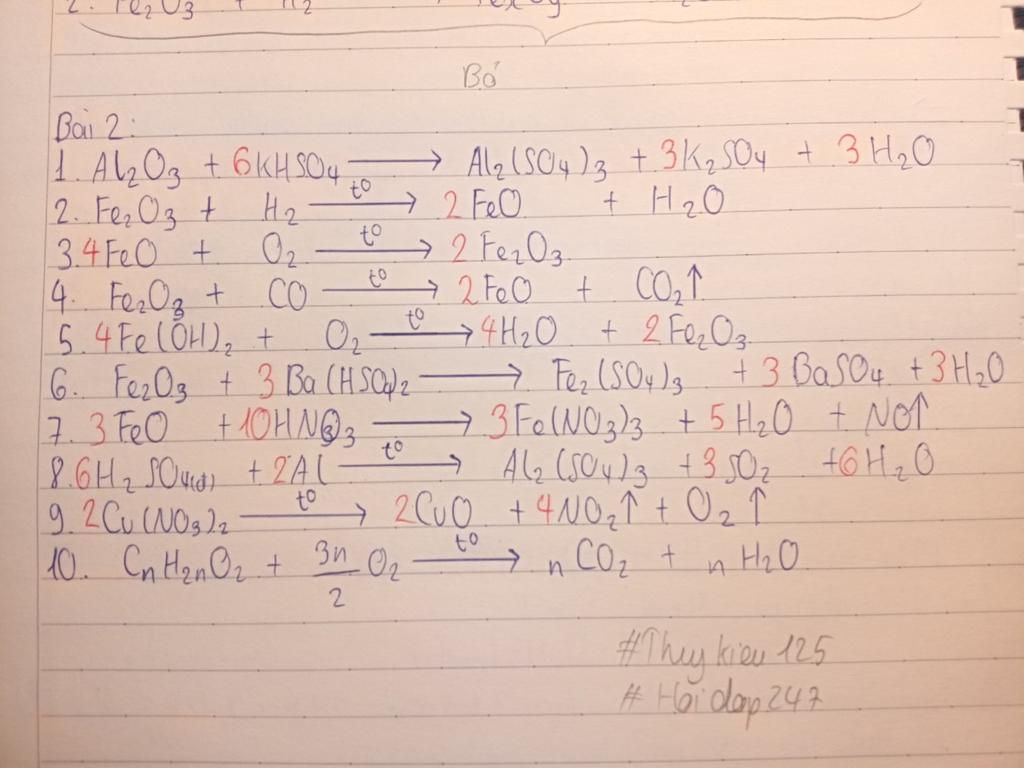 2. Fe₂O₃ + H₂
Bỏ
Bài 2:
1. Al₂O₃ + 6KHSO₄ ⟶ Al₂(SO₄)₃ + 3K₂SO₄ + 3H₂O
2. Fe₂O₃ + H₂ —t⁰→ 2FeO + H₂O
3. 4FeO + O₂ —t⁰→ 2Fe₂O₃
4. Fe₂O₃ + CO —t⁰→ 2FeO + CO₂↑
5. 4Fe(OH)₂ + O₂ —t⁰→ 4H₂O + 2Fe₂O₃
6. Fe₂O₃ + 3Ba(HSO₄)₂ ⟶ Fe₂(SO₄)₃ + 3BaSO₄ + 3H₂O
7. 3FeO + 10HNO₃ ⟶ 3Fe(NO₃)₃ + 5H₂O + NO↑
8. 6H₂SO₄(đ) + 2Al —t⁰→ Al₂(SO₄)₃ + 3SO₂ + 6H₂O
9. 2Cu(NO₃)₂ —t⁰→ 2CuO + 4NO₂↑ + O₂↑
10. CnH2nO₂ + 3n/2 O₂ —t⁰→ nCO₂ + nH₂O
#Thuykieu125
#Hoidap247